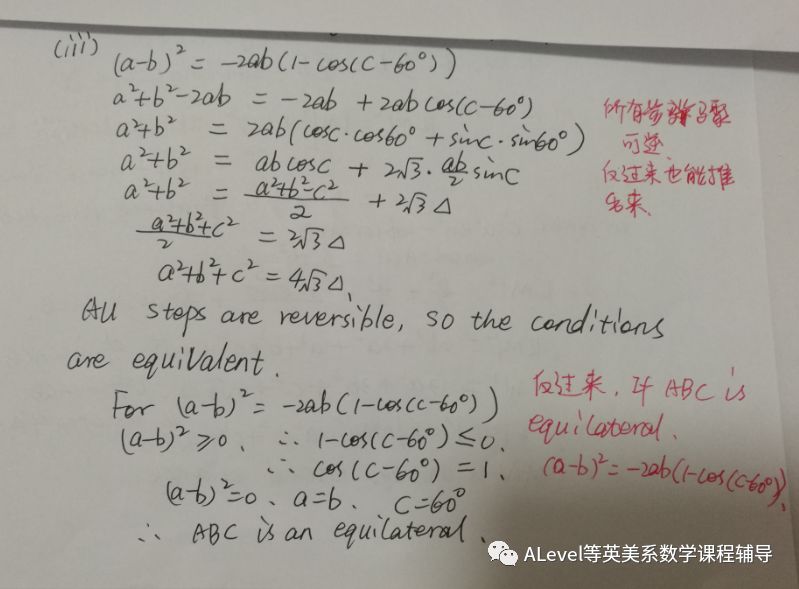 (iii)
(a-b)² = -2ab(1-cos(C-60°))
a²+b²-2ab = -2ab + 2ab cos(C-60°)
a²+b² = 2ab(cosC·cos60° + sinC·sin60°)
a²+b² = abcosC + 2√3·ab/2 sinC
a²+b² = (a²+b²-c²)/2 + 2√3 Δ
(a²+b²+c²)/2 = 2√3 Δ
a²+b²+c² = 4√3 Δ.
所有步骤
可逆.
反过来也能推
出来.
All steps are reversible, so the conditions
are equivalent.
For (a-b)² = -2ab(1-cos(C-60°))
(a-b)² ≥ 0. ∴ 1-cos(C-60°) ≤ 0.
∴ cos(C-60°) = 1.
(a-b)² = 0、a=b、 C=60°
∴ ABC is an equilateral.
反过来, If ABC is
equilateral.
(a-b)² = -2ab(1-cos(C-60°)).
ALevel等英美系数学课程辅导